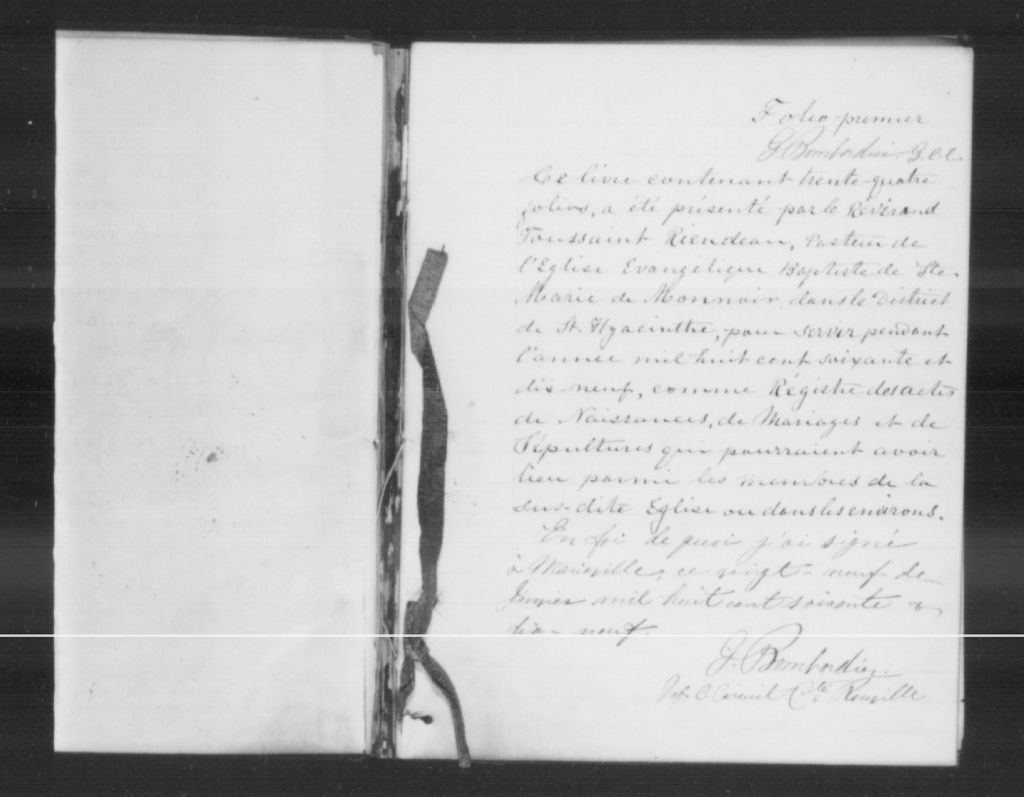 Folio premier
J. Bombardier. G.C.C.
Ce livre contenant trente-quatre
folios, a été présenté par le Révérand
Toussaint Riendeau, Pasteur de
l'Eglise Evangélique Baptiste de Ste-
Marie de Monnoir, dans le District
de St. Hyacinthe, pour servir pendant
l'année mil huit cent soixante et
dix-neuf, comme Régistre des actes
de Naissances, de Mariages et de
Sépultures qui pourraient avoir
lieu parmi les membres de la
sus-dite Eglise ou dans les environs.
En foi de quoi j'ai signé
à Marieville, ce vingt-neuf de
Janvier mil huit cent soixante &
dix-neuf.
J. Bombardier.
Dep. C. Circuit Cté Rouville